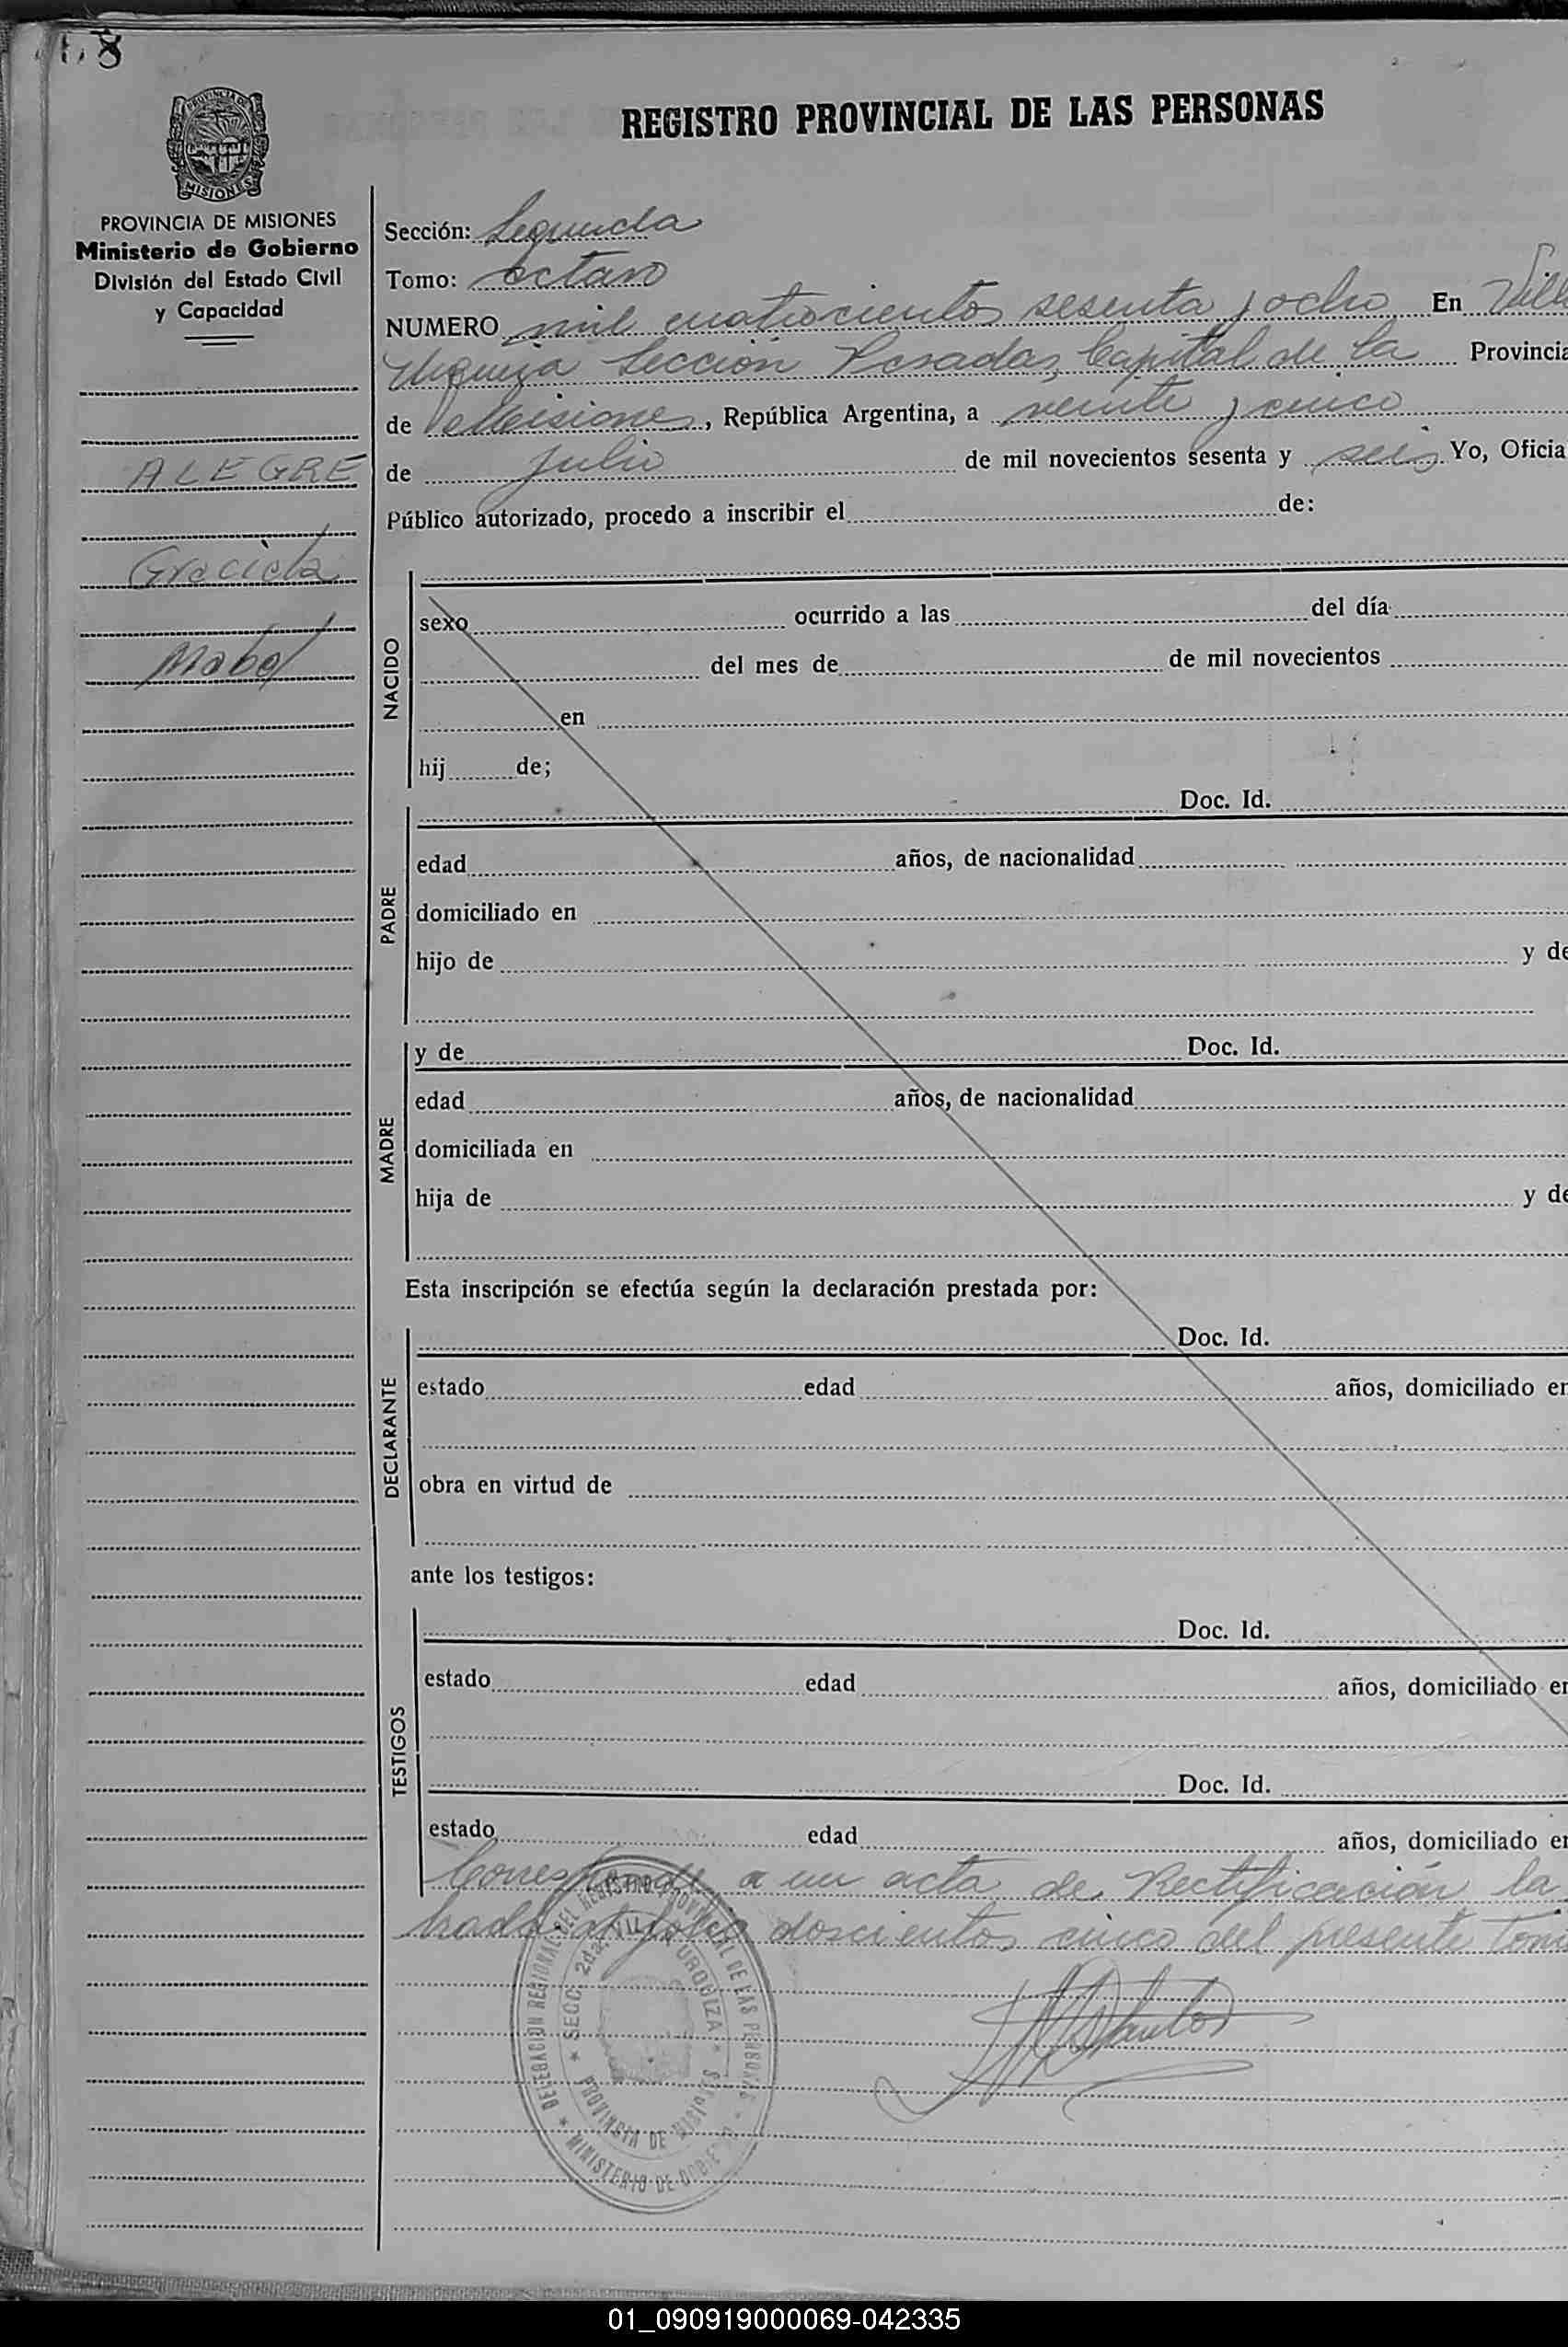 REGISTRO PROVINCIAL DE LAS PERSONAS
PROVINCIA DE
MISIONES
PROVINCIA DE MISIONES
Ministerio de Gobierno
División del Estado Civil
y Capacidad
ALEGRE
Graciela
Mabel
Sección: Segunda
Tomo: octavo
NUMERO mil cuatrocientos sesenta y ocho En Vill
Urquiza Sección Posadas, Capital de la Provincia
de Misiones, República Argentina, a veinte y cinco
de julio de mil novecientos sesenta y seis Yo, Oficia
Público autorizado, procedo a inscribir el de:
NACIDO
sexo ocurrido a las del día
del mes de de mil novecientos
en
hij de;
PADRE
Doc. Id.
edad años, de nacionalidad
domiciliado en
hijo de y de
MADRE
y de Doc. Id.
edad años, de nacionalidad
domiciliada en
hija de y de
Esta inscripción se efectúa según la declaración prestada por:
DECLARANTE
Doc. Id.
estado edad años, domiciliado en
obra en virtud de
ante los testigos:
TESTIGOS
Doc. Id.
estado edad años, domiciliado en
Doc. Id.
estado edad años, domiciliado en
Corresponde a un acta de Rectificación la
brada al folio doscientos cinco del presente tomo
DELEGACION REGIONAL DEL REGISTRO PROVINCIAL DE LAS PERSONAS
MINISTERIO DE GOBIERNO
SECC. 2da. VILLA URQUIZA
PROVINCIA DE MISIONES
01_090919000069-042335